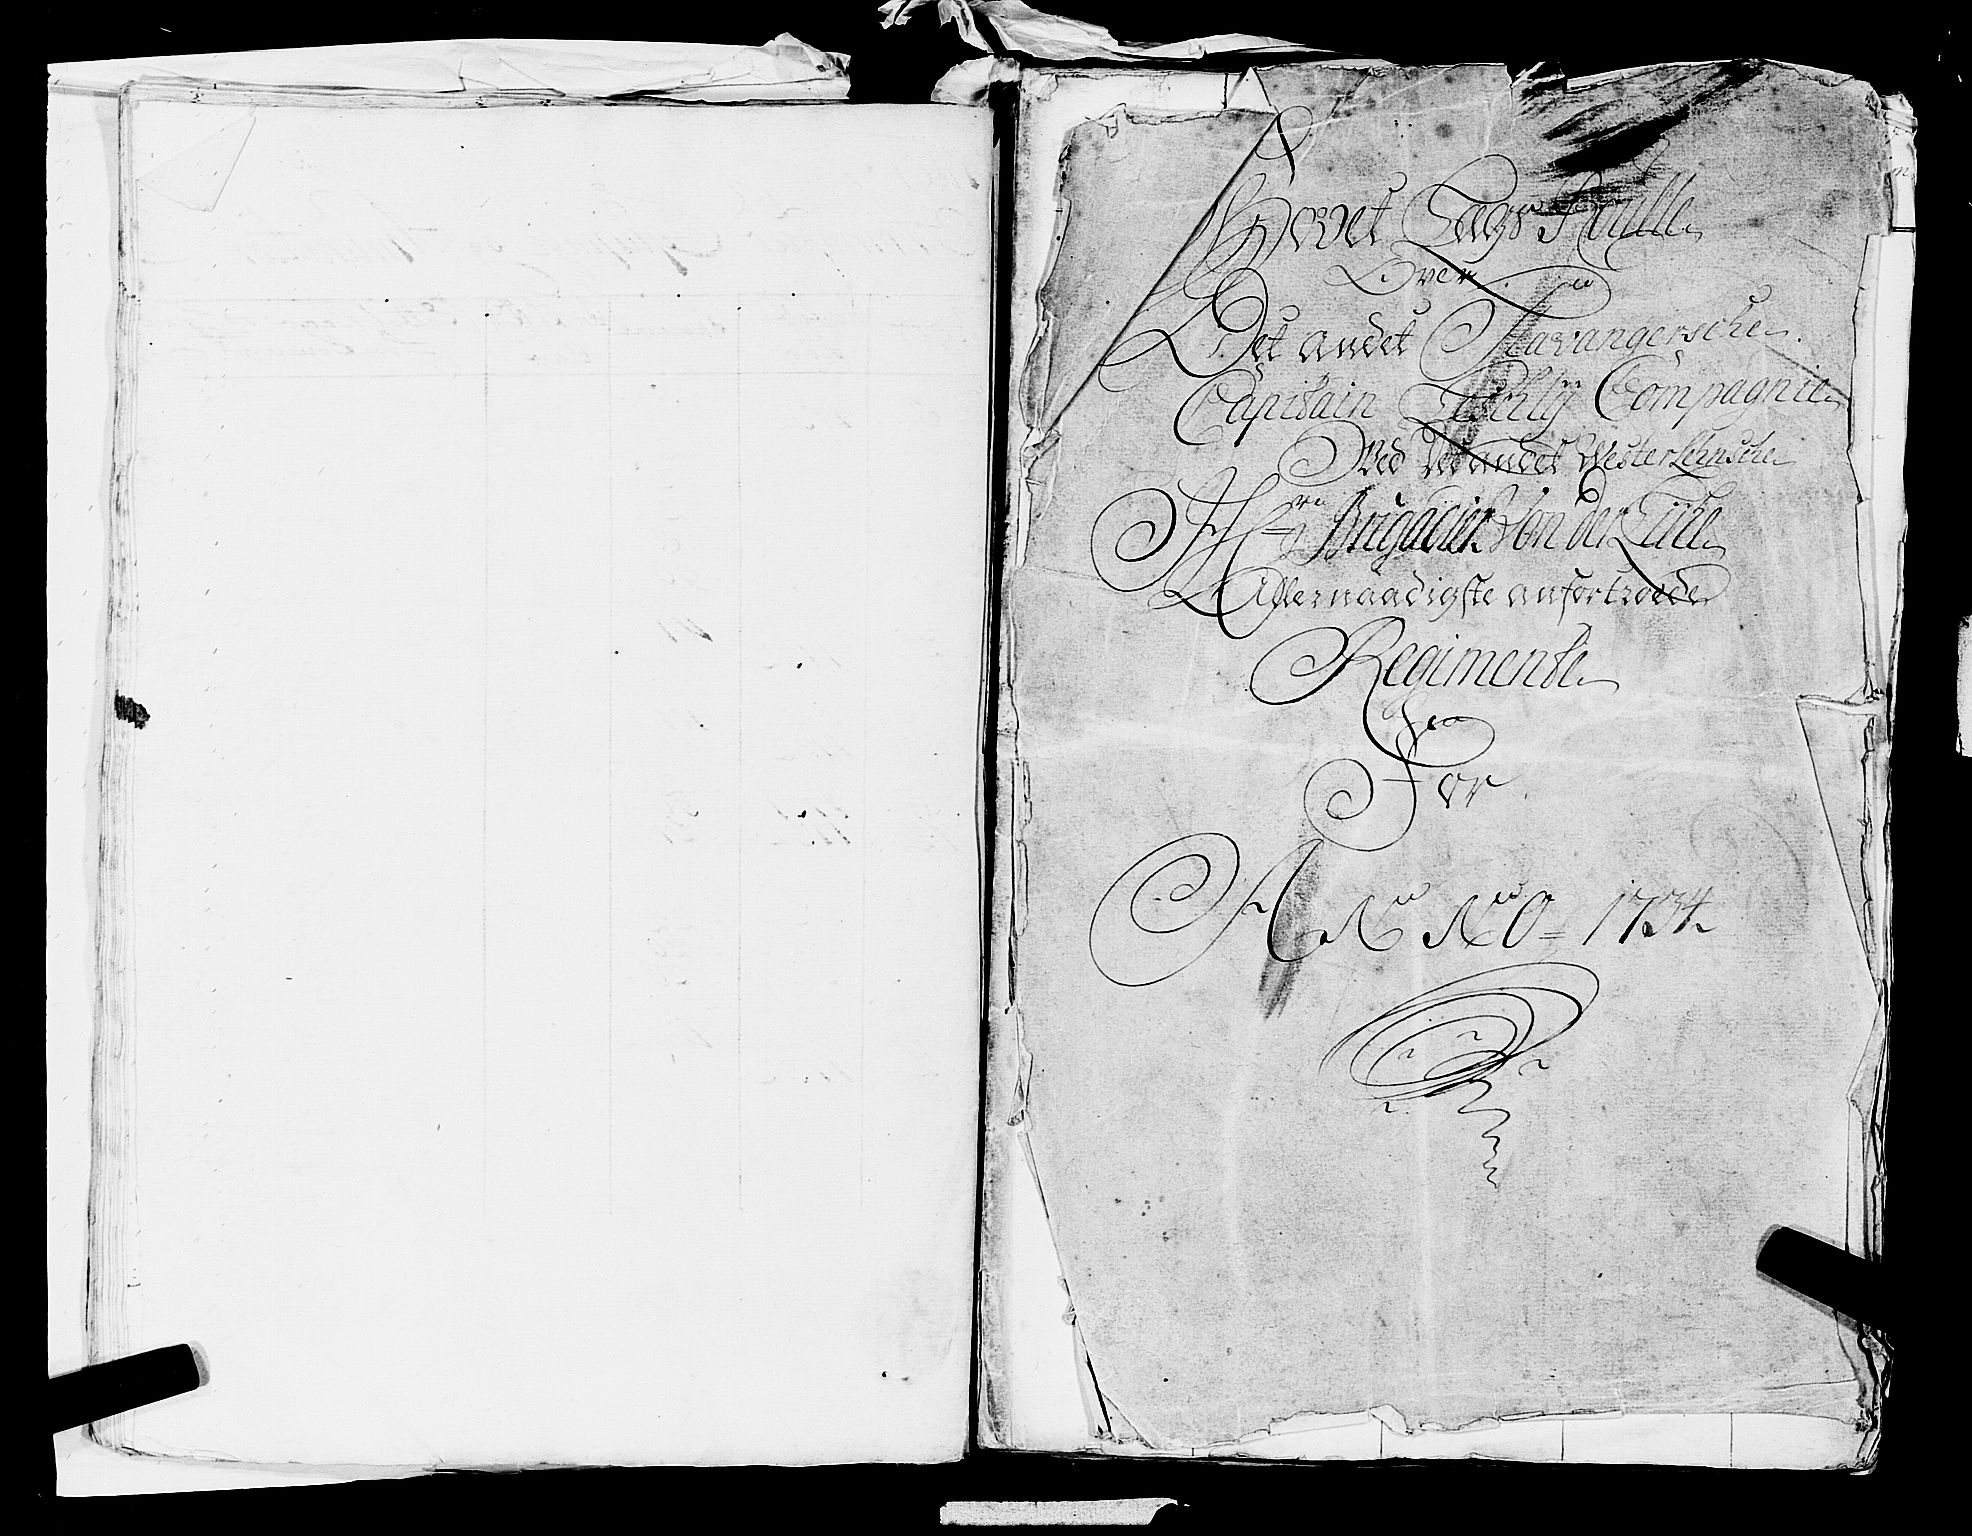 Hovet Lægs Rulle
Over
Det andet Stavangersche
Capitain Compagnie
Ved Det andet Westerlehnsche
Hrn Brigadier Von der Lühe
Allernaadigste anfortroede
Regimente
For
ANNO = 1734